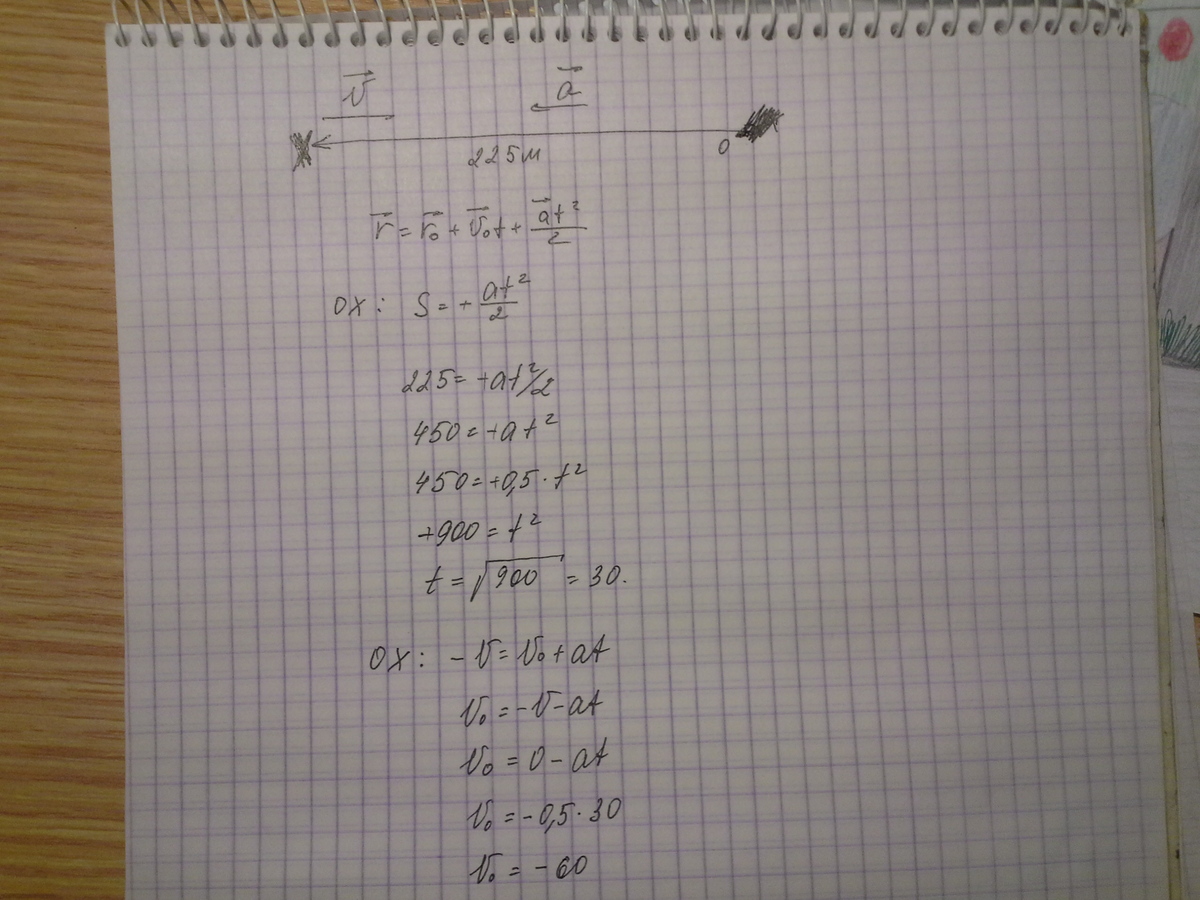 v⃗ a⃗
225м 0
r⃗ = r⃗₀ + v⃗₀t + a⃗t²/2
OX: S = + at²/2
225 = +at²/2
450 = +at²
450 = +0,5 · t²
+900 = t²
t = √900 = 30.
OX: - v = v₀ + at
v₀ = - v - at
v₀ = 0 - at
v₀ = - 0,5 · 30
v₀ = - 60